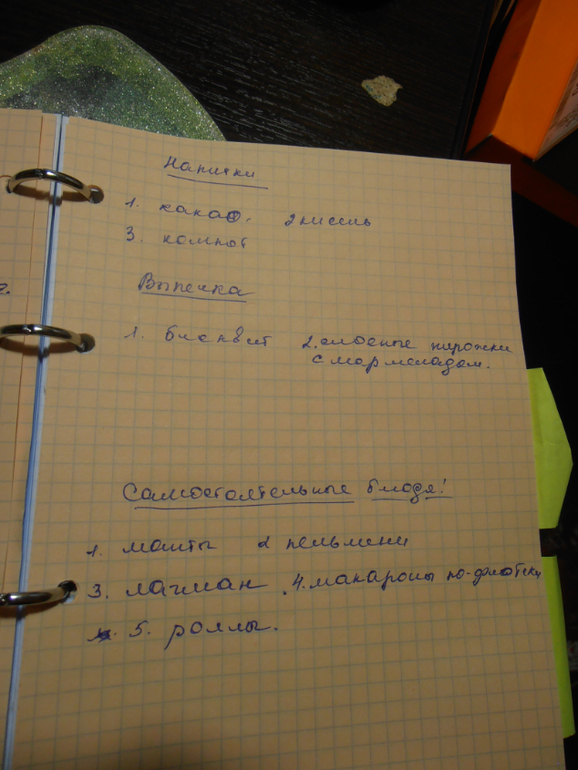 Напитки
1. какао. 2 кисель
3. компот
г.
Выпечка
1. бисквит 2. слоеные пирожки
с мармеладом.
Самостоятельные блюдя!
1. манты 2 пельмени
3. лагман . 4. макароны по-флотски
5. роллы.